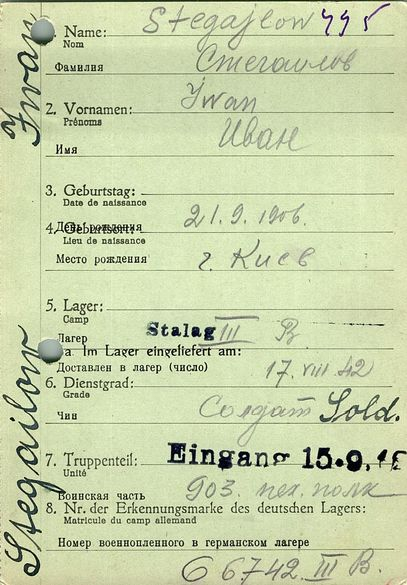 1. Name: Stegajlow 995
Nom
Фамилия Стегаилов
2. Vornamen: Jwan
Prénoms
Имя Иван
3. Geburtstag:
Date de naissance
День рождения 21.9.1906.
4. Geburtsort:
Lieu de naissance
Место рождения г. Киев
5. Lager:
Camp
Лагер Stalag III B
a. Im Lager eingeliefert am:
Доставлен в лагер (число) 17. VIII 42
6. Dienstgrad:
Grade
Чин Солдат Sold.
7. Truppenteil: Eingang 15.9.
Unité
Воинская часть 903. пех. полк
8. Nr. der Erkennungsmarke des deutschen Lagers:
Matricule du camp allemand
Номер военнопленного в германском лагере
66742 III B.
Stegailow Jwan